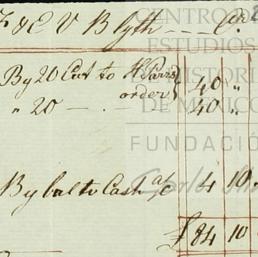 F & E V Blyth - - - Cr.
CENTRO DE
ESTUDIOS
DE HISTORIA
DE MÉXICO
FUNDACIÓN
By 20 Cwt to H Parrs } 40 "
order
" 20 - . - 40 "
By bal to Cash a/c 4 10
£ 84 10